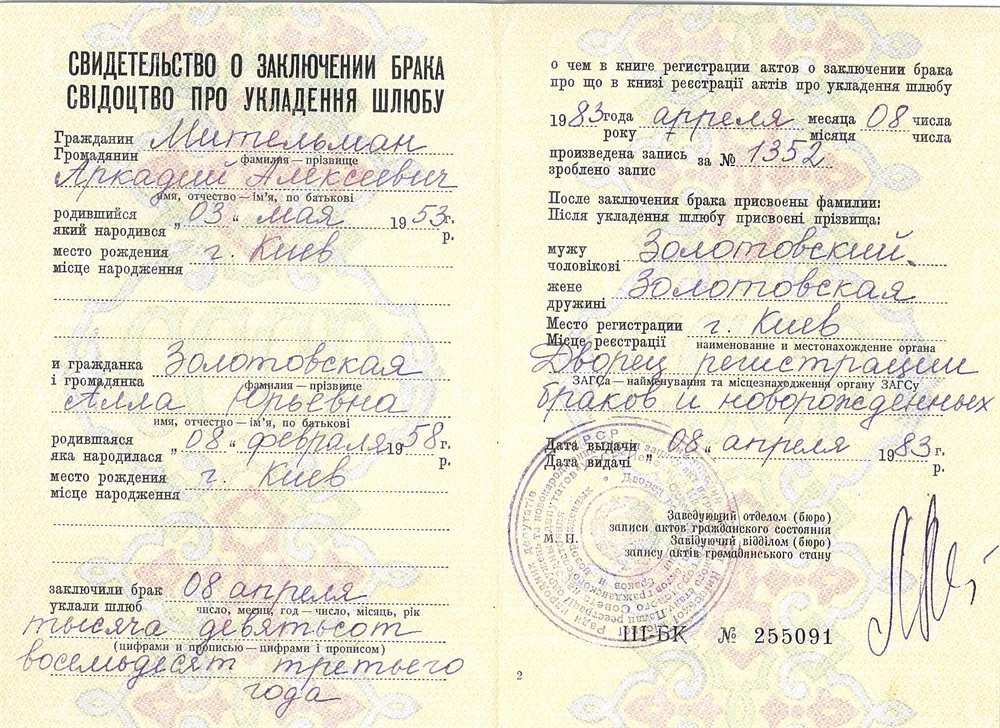 СВИДЕТЕЛЬСТВО О ЗАКЛЮЧЕНИИ БРАКА
СВІДОЦТВО ПРО УКЛАДЕННЯ ШЛЮБУ
Гражданин Мительман
Громадянин
фамилия — прізвище
Аркадий Алексеевич
имя, отчество — ім'я, по батькові
родившийся „ 03 " мая 1953 г.
який народився р.
место рождения г. Киев
місце народження
и гражданка Золотовская
і громадянка
фамилия — прізвище
Алла Юрьевна
имя, отчество — ім'я, по батькові
родившаяся „ 08 " февраля 1958 г.
яка народилася р.
место рождения г. Киев
місце народження
заключили брак 08 апреля
уклали шлюб число, месяц, год — число, місяць, рік
тысяча девятьсот
(цифрами и прописью — цифрами і прописом)
восемьдесят третьего
года
о чем в книге регистрации актов о заключении брака
про що в книзі реєстрації актів про укладення шлюбу
1983 года апреля месяца 08 числа
року місяця числа
произведена запись за № 1352
зроблено запис
После заключения брака присвоены фамилии:
Після укладення шлюбу присвоєні прізвища:
мужу Золотовский
чоловікові
жене Золотовская
дружині
Место регистрации г. Киев
Місце реєстрації наименование и местонахождение органа
Дворец регистрации
ЗАГСа — найменування та місцезнаходження органу ЗАГСу
браков и новорожденных
Дата выдачи „ 08 " апреля 1983 г.
Дата видачі р.
Заведующий отделом (бюро)
записи актов гражданского состояния
М. П. Завідуючий відділом (бюро)
запису актів громадянського стану
III-БК № 255091
2